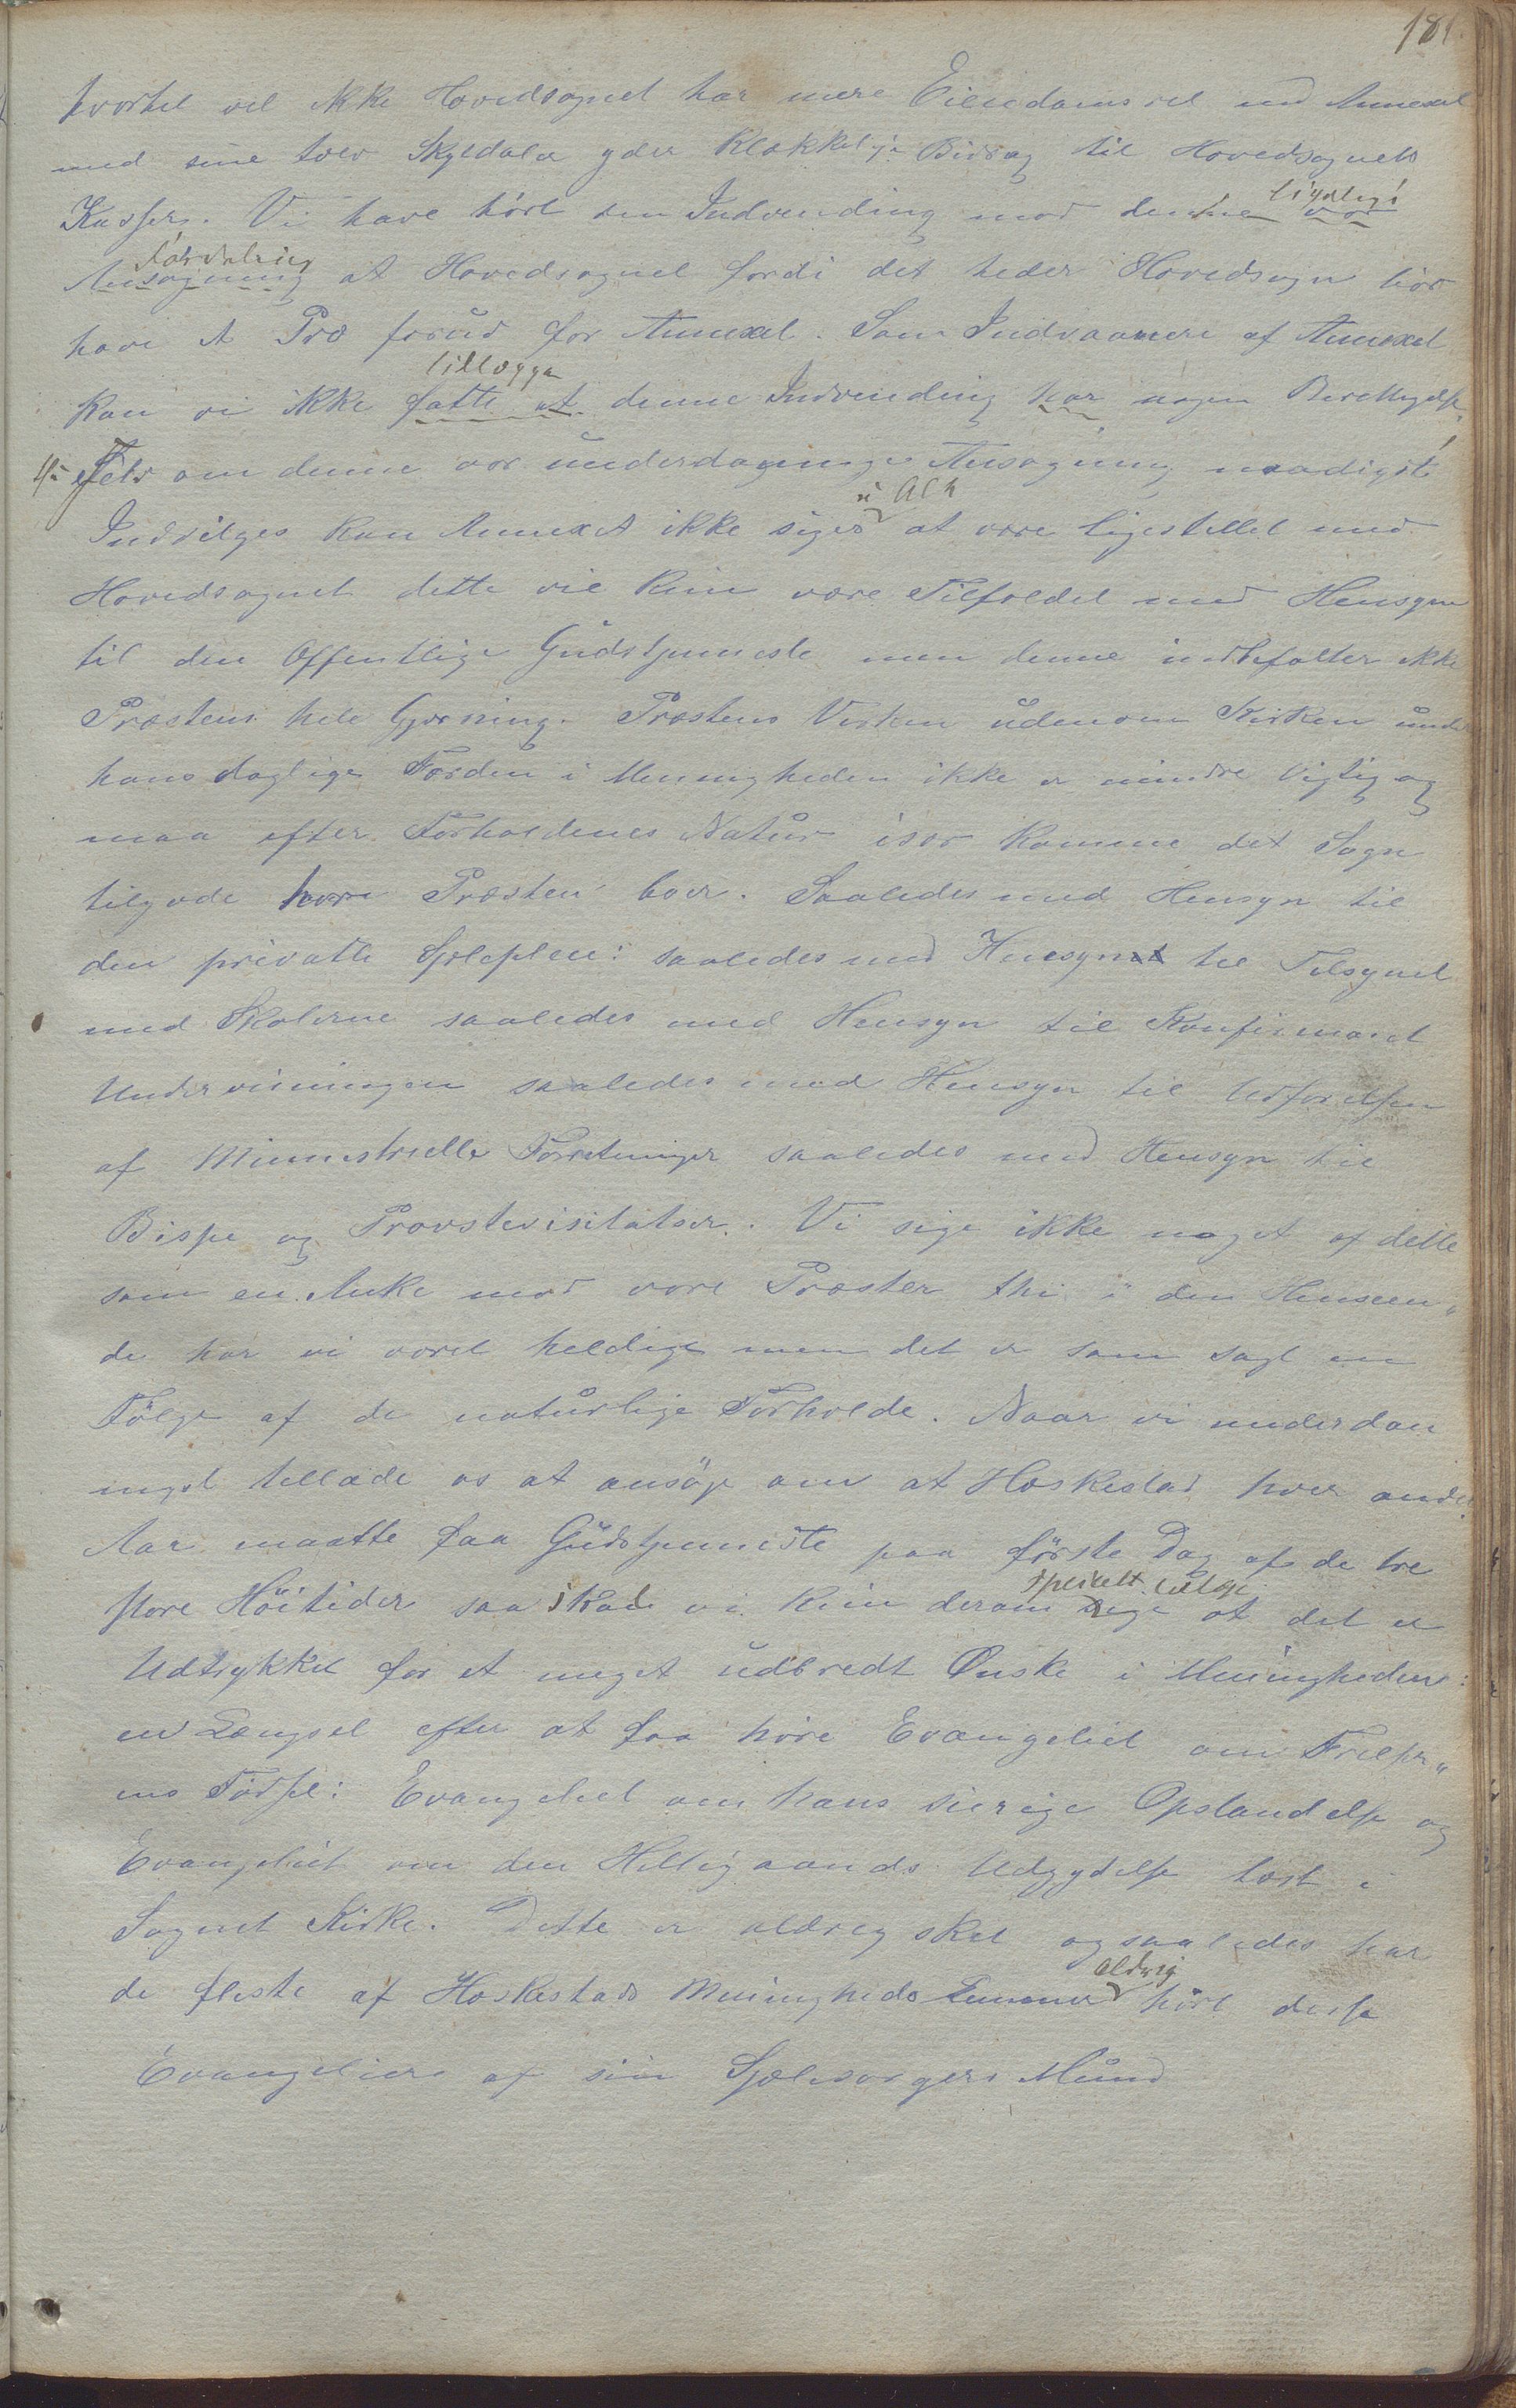 181.
hvortil vel ikke Hovedsognet har mere Eiendoms ret end Annexet
med sine tolv Skyldaler yder Klækkelige Bidrag til Hovedsognets
Kasser. Vi have hørt den Indvending mod denne vor
ligelige
fordeling
Ansøgning at Hovedsognet fordi det heder Hovedsogn bör
have et Præ forud for Annexet. Som Indvaanere af Annexet
tillægge
kan vi ikke fatte at denne Indvending har nogen Berettigelse,
Selv om denne vor underdanige Ansøgning naadigst
i Alt
Indvilges kan Annexet ikke siges at være ligestillet med
Hovedsognet dette vil kun være Tilfældet med Hensyn
til den Offentlige Gudstjenneste men denne indbefatter ikke
Præstens hele Gjerning. Præstens Virken udenom Kirken under
hans daglige Færden i Menigheden ikke er mindre Vigtig og
maa efter Forholdenes Natur især komme det Sogn
tilgode hvor Præsten boer. Saaledes med Hensyn til
den private Sjæleplei: saaledes med Hensyn til Tilsynet
med Skolerne saaledes med Hensyn til Konfirmant
Undervisningen saaledes med Hensyn til Udførelsen
af Minnistrielle Forretninger saaledes med Hensyn til
Bispe og Provstevisitatser. Vi sige ikke noget af dette
som en Anke mod vore Præster thi i den Henseen„
de har vi været heldige men det er som sagt en
Fölge af de naturlige Forholde. Naar vi underdan
ingst tillade os at ansöge om at Høskestad hver andet
Aar maatte faa Gudstjenneste paa förste Dag af de tre
store Höitider saa skal vi kun derom sige at det er
specielt tilføje
Udtrykket for et meget udbredt Ønske i Menigheden:
en Længsel efter at faa höre Evangeliet om Frelser„
ens Födsel: Evangeliet om hans seierige Opstandelse og
Evangeliet om den Helligaands Udgydelse læst i
Sognet Kirke. Dette er aldrig skeet og saaledes har
aldrig
de fleste af Høskestads Menigheds Lemmer hört disse
Evangelier af sin Sjælesorgers Mund